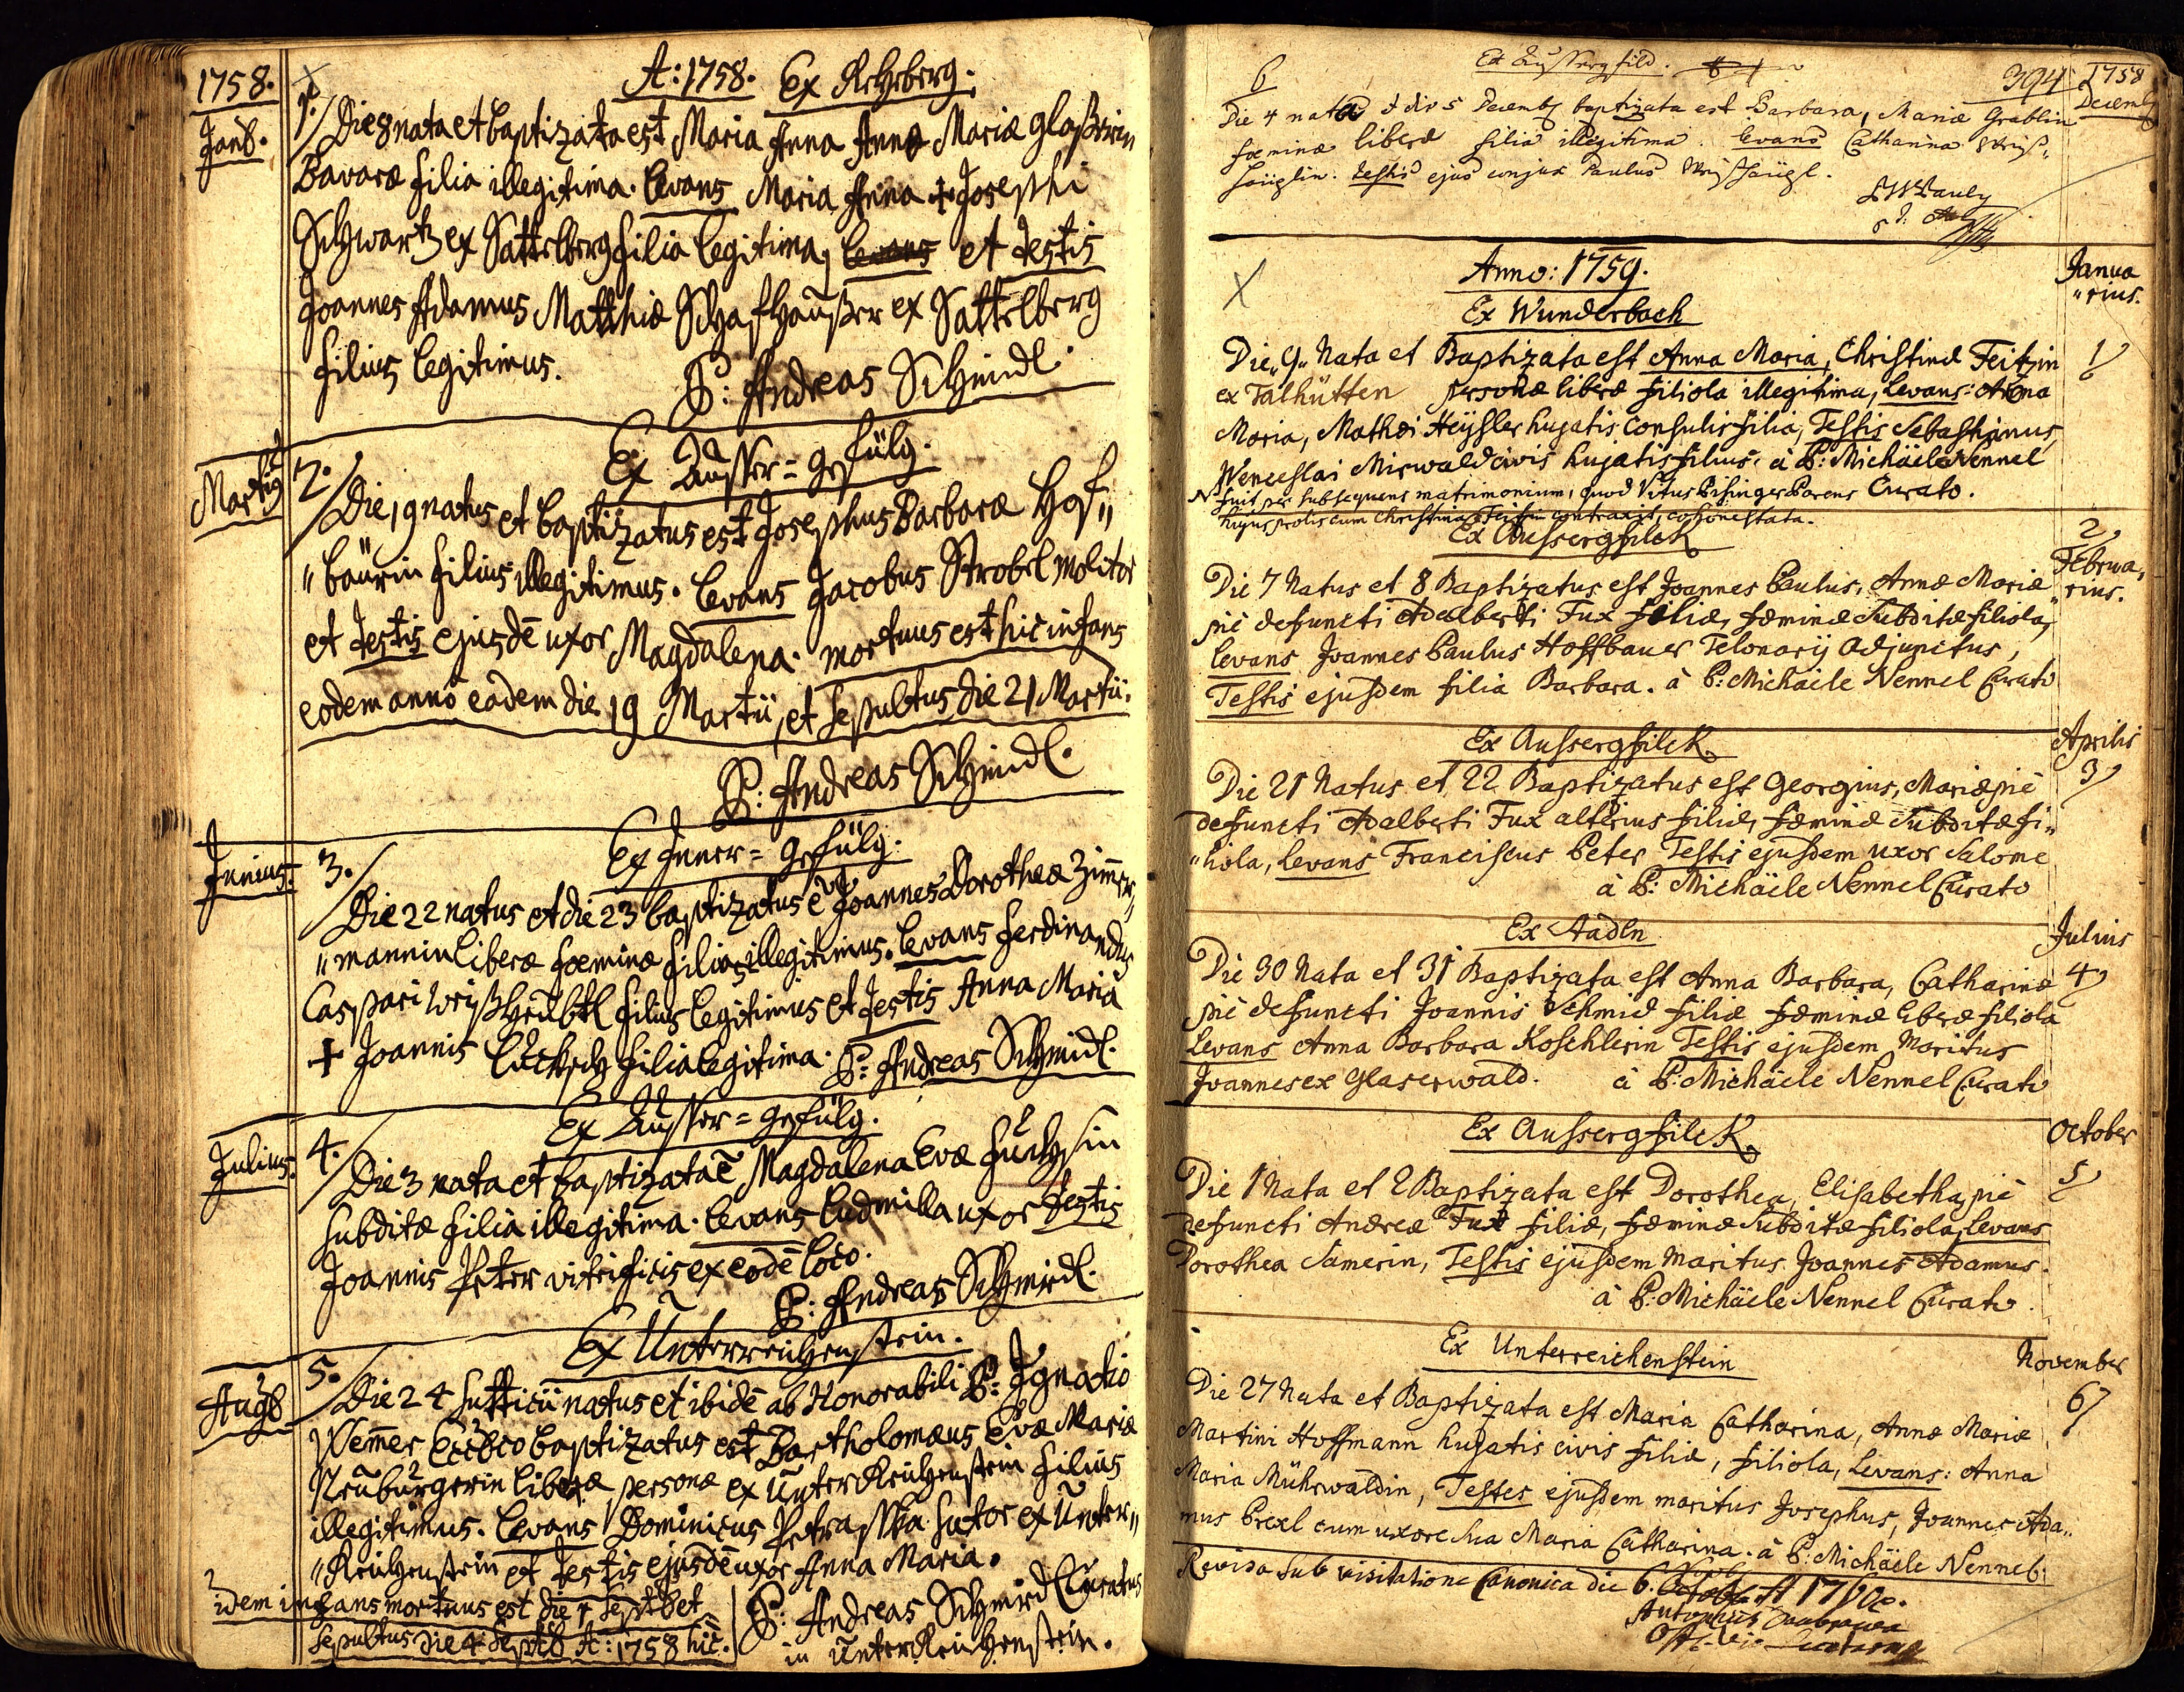 1758.
A: 1758. Ex Rehberg.
Janȓ.
1. Die 8 nata et baptizata est Maria Anna Annæ Mariæ Glaßerin
Bavaræ filia illegitima. Levans Maria Anna + Josephi
Schwartz ex Sattelberg filia legitima, et Testis
Joannes Adamus Matthiæ Schafhaußer ex Sattelberg
filius legitimus.
P: Andreas Schmidl.
Ex Ausser=gefülg.
Martiȝ
2. Die 19 natus et baptizatus est Josephus Barbaræ Hof„
„baurin filius illegitimus. Levans Jacobus Strobel molitor
et Testis ejusdē uxor Magdalena. mortuus est hic infans
eodem anno eadem die 19 Martii, et sepultus die 21 Martii.
P: Andreas Schmidl.
Ex Inner=gefülg.
Junius.
3. Die 22 natus et die 23 baptizatus ē Joannes Dorotheæ Zim̄er„
„mannin liberæ fœminæ filius illegitimus. Levans Ferdinandus
Caspari filius legitimus et Testis Anna Maria
+ Joannis filia legitima. P: Andreas Schmidl.
Ex Ausser=gefülg.
Julius.
4. Die 3 nata et baptizata ē Magdalena Evæ Fuchsin
subditæ filia illegitima. Levans Ludmilla uxor Testis
Joannis Peter vitrificis ex eodē loco.
P: Andreas Schmidl.
Ex Unterreichenstein.
Augȝ
5. Die 24 Suttitii natus et ibidē ab Honorabili P: Ignatio
Wem̄er baptizatus est Bartholomæus Evæ Mariæ
Neuburgerin liberæ personæ ex Unterreichenstein filius
illegitimus. Levans Dominicus Petrasska sutor ex Unter„
„Reichenstein et Testis ejusdē uxor Anna Maria.
idem infans mortuus est die 4 Septȓ et
sepultus die 4 Septȓ A: 1758 hic.
P: Andreas Schmidl Curatus
in Unterreichenstein.
6
Ex Aussergfild.
394
1758
Decemb
Die 4 nata & die 5 Decemb baptizata est Barbara, Mariæ Grablin
fœminæ liberæ filia illegitima. Levans Catharina Weiß„
häuplin. Testis ejus conjux Paulus
Anno: 1759.
Janua
„rius.
Ex Wunderbach
1
Die „9„ Nata et Baptizata est Anna Maria, Christinæ Feitzin
ex Talhütten personæ liberæ filiola illegitima, Levans: Anna
Maria, Mathæi Heÿsler hujatis Consulis filia, Testis Sebastianus,
Wenceslai Mirwald civis hujatis filius. à P: Michäele Nennel
Curato.
fuit per subsequens matrimonium, quod Vitus Pisinger Parens
hujus prolis cum Christina Feitzin contraxit, cohonestata.
Ex Aussergfilck
2
Februa„
rius.
Die 7 Natus et 8 Baptizatus est Joannes Paulus, Annæ Mariæ
piè defuncti Adalberti Fux filiæ, fæminæ Subditæ filiola,
Levans Joannes Paulus Hoffbauer Telonarij Adjunctus,
Testis ejusdem filia Barbara. à P: Michäele Nennel Curato
Ex Aussergfilck
Aprilis
3
Die 21 Natus et 22 Baptizatus est Georgius, Mariæ piè
defuncti Adalberti Fux alterius filiæ, fæminæ Subditæ fi„
„liola, Levans Franciscus Peter, Testis ejusdem uxor Salome
à P: Michäele Nennel Curato
Ex Stadln
Julius
4
Die 30 Nata et 31 Baptizata est Anna Barbara, Catharinæ
piè defuncti Joannis Schmid filiæ fæminæ liberæ filiola
Levans Anna Barbara Koschlerin Testis ejusdem Maritus
Joannes ex Glaserwald. à P: Michäele Nennel Curato
Ex Aussergfilck
October
5
Die 1 Nata et 2 Baptizata est Dorothea, Elisabethæ piè
defuncti Andreæ Fux filiæ, fæminæ Subditæ filiola, Levans
Dorothea Samerin, Testis ejusdem Maritus Joannes Adamus.
à P: Michäele Nennel Curato.
Ex Unterreichenstein
November
6
Die 27 Nata et Baptizata est Maria Catharina, Annæ Mariæ
Martini Hoffmann hujatis civis filiæ, filiola, Levans: Anna
Maria Mührwaldin, Testes ejusdem maritus Josephus, Joannes Ada„
mus Prexl cum uxore sua Maria Catharina. à P: Michäele Nennel.
Revisa sub visitatione Canonica die 6. A 1760.